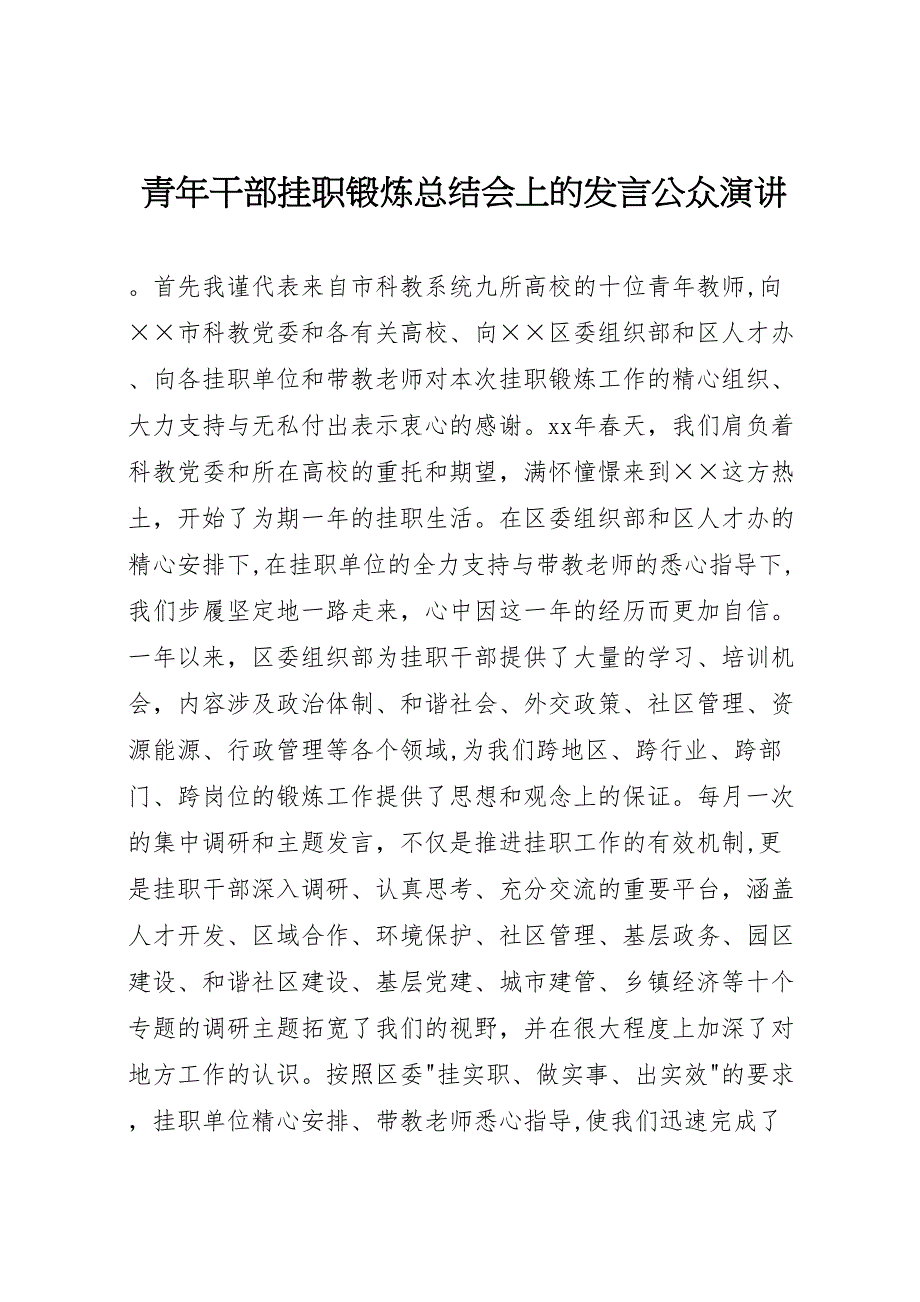 青年干部挂职锻炼总结会上的发言公众演讲
。首先我谨代表来自市科教系统九所高校的十位青年教师,向
××市科教党委和各有关高校、向××区委组织部和区人才办
、向各挂职单位和带教老师对本次挂职锻炼工作的精心组织、
大力支持与无私付出表示衷心的感谢。xx年春天，我们肩负着
科教党委和所在高校的重托和期望，满怀憧憬来到××这方热
土，开始了为期一年的挂职生活。在区委组织部和区人才办的
精心安排下,在挂职单位的全力支持与带教老师的悉心指导下,
我们步履坚定地一路走来，心中因这一年的经历而更加自信。
一年以来，区委组织部为挂职干部提供了大量的学习、培训机
会，内容涉及政治体制、和谐社会、外交政策、社区管理、资
源能源、行政管理等各个领域,为我们跨地区、跨行业、跨部
门、跨岗位的锻炼工作提供了思想和观念上的保证。每月一次
的集中调研和主题发言，不仅是推进挂职工作的有效机制,更
是挂职干部深入调研、认真思考、充分交流的重要平台，涵盖
人才开发、区域合作、环境保护、社区管理、基层政务、园区
建设、和谐社区建设、基层党建、城市建管、乡镇经济等十个
专题的调研主题拓宽了我们的视野，并在很大程度上加深了对
地方工作的认识。按照区委"挂实职、做实事、出实效"的要求
，挂职单位精心安排、带教老师悉心指导,使我们迅速完成了